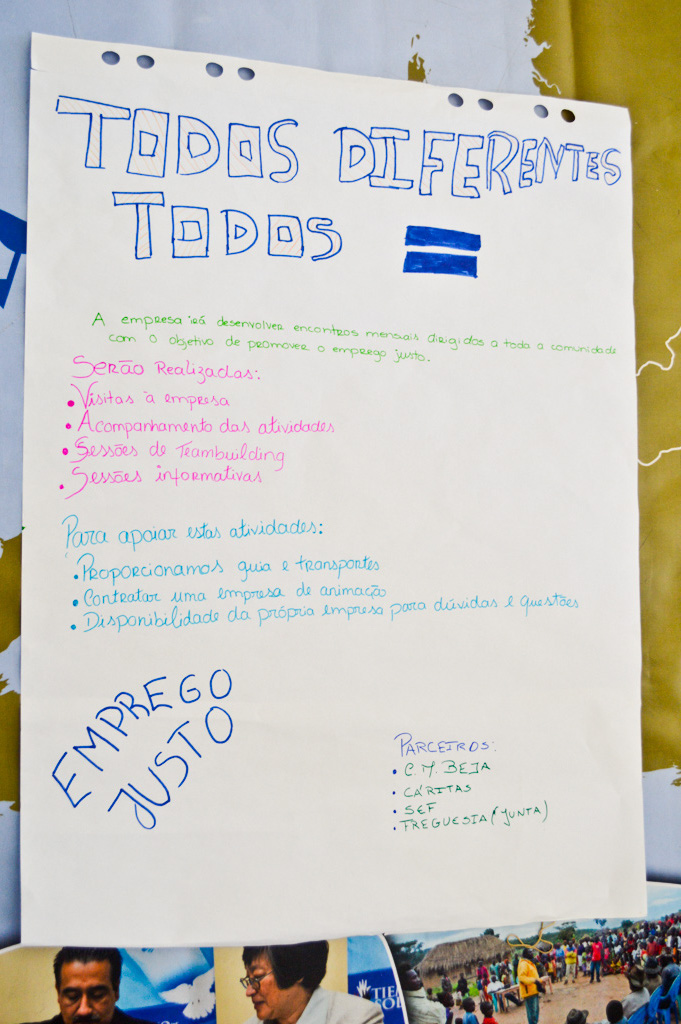 TODOS DIFERENTES
TODOS =
A empresa irá desenvolver encontros mensais dirigidos a toda a comunidade
com o objetivo de promover o emprego justo.
Serão Realizadas:
• Visitas à empresa
• Acompanhamento das atividades
• Sessões de Teambuilding
• Sessões informativas
Para apoiar estas atividades:
• Proporcionamos guia e transportes
• Contratar uma empresa de animação
• Disponibilidade da própria empresa para dúvidas e questões
EMPREGO
JUSTO
PARCEIROS:
• C. M. BEJA
• CÁRITAS
• SEF
• FREGUESIA (JUNTA)